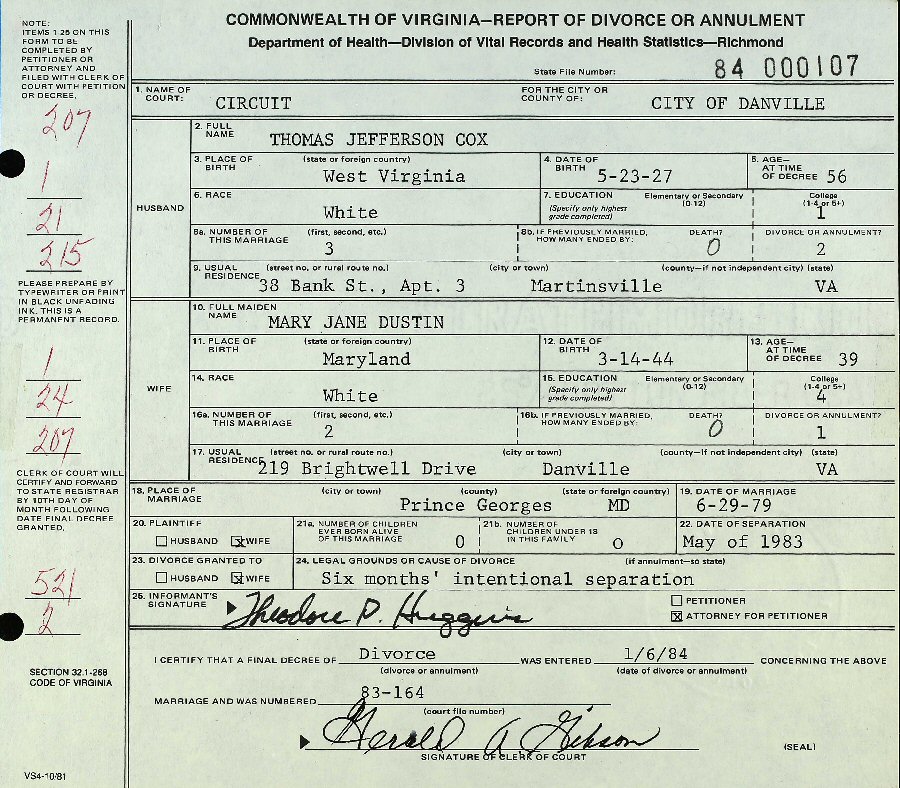 COMMONWEALTH OF VIRGINIA—REPORT OF DIVORCE OR ANNULMENT
Department of Health—Division of Vital Records and Health Statistics—Richmond
State File Number: 84 000107
NOTE:
ITEMS 1-25 ON THIS
FORM TO BE
COMPLETED BY
PETITIONER OR
ATTORNEY AND
FILED WITH CLERK OF
COURT WITH PETITION
OR DECREE.
207
1
21
215
PLEASE PREPARE BY
TYPEWRITER OR PRINT
IN BLACK UNFADING
INK. THIS IS A
PERMANENT RECORD.
1
24
207
CLERK OF COURT WILL
CERTIFY AND FORWARD
TO STATE REGISTRAR
BY 10TH DAY OF
MONTH FOLLOWING
DATE FINAL DECREE
GRANTED.
521
2
SECTION 32.1-268
CODE OF VIRGINIA
VS4-10/81
1. NAME OF COURT: CIRCUIT FOR THE CITY OR COUNTY OF: CITY OF DANVILLE
HUSBAND
2. FULL NAME THOMAS JEFFERSON COX
3. PLACE OF BIRTH (state or foreign country) West Virginia 4. DATE OF BIRTH 5-23-27 5. AGE— AT TIME OF DECREE 56
6. RACE White 7. EDUCATION (Specify only highest grade completed) Elementary or Secondary (0-12) College (1-4 or 5+) 1
8a. NUMBER OF THIS MARRIAGE (first, second, etc.) 3 8b. IF PREVIOUSLY MARRIED, HOW MANY ENDED BY: DEATH? 0 DIVORCE OR ANNULMENT? 2
9. USUAL RESIDENCE (street no. or rural route no.) (city or town) (county—if not independent city) (state)
38 Bank St., Apt. 3 Martinsville VA
WIFE
10. FULL MAIDEN NAME MARY JANE DUSTIN
11. PLACE OF BIRTH (state or foreign country) Maryland 12. DATE OF BIRTH 3-14-44 13. AGE— AT TIME OF DECREE 39
14. RACE White 15. EDUCATION (Specify only highest grade completed) Elementary or Secondary (0-12) College (1-4 or 5+) 4
16a. NUMBER OF THIS MARRIAGE (first, second, etc.) 2 16b. IF PREVIOUSLY MARRIED, HOW MANY ENDED BY: DEATH? 0 DIVORCE OR ANNULMENT? 1
17. USUAL RESIDENCE (street no. or rural route no.) (city or town) (county—if not independent city) (state)
219 Brightwell Drive Danville VA
18. PLACE OF MARRIAGE (city or town) (county) (state or foreign country) Prince Georges MD 19. DATE OF MARRIAGE 6-29-79
20. PLAINTIFF HUSBAND X WIFE 21a. NUMBER OF CHILDREN EVER BORN ALIVE OF THIS MARRIAGE 0 21b. NUMBER OF CHILDREN UNDER 18 IN THIS FAMILY 0 22. DATE OF SEPARATION May of 1983
23. DIVORCE GRANTED TO HUSBAND X WIFE 24. LEGAL GROUNDS OR CAUSE OF DIVORCE (if annulment—so state) Six months' intentional separation
25. INFORMANT'S SIGNATURE Theodore P. Huggins PETITIONER
X ATTORNEY FOR PETITIONER
I CERTIFY THAT A FINAL DECREE OF Divorce WAS ENTERED 1/6/84 CONCERNING THE ABOVE
(divorce or annulment) (date of divorce or annulment)
MARRIAGE AND WAS NUMBERED 83-164
(court file number)
Gerald A Gibson
SIGNATURE OF CLERK OF COURT (SEAL)